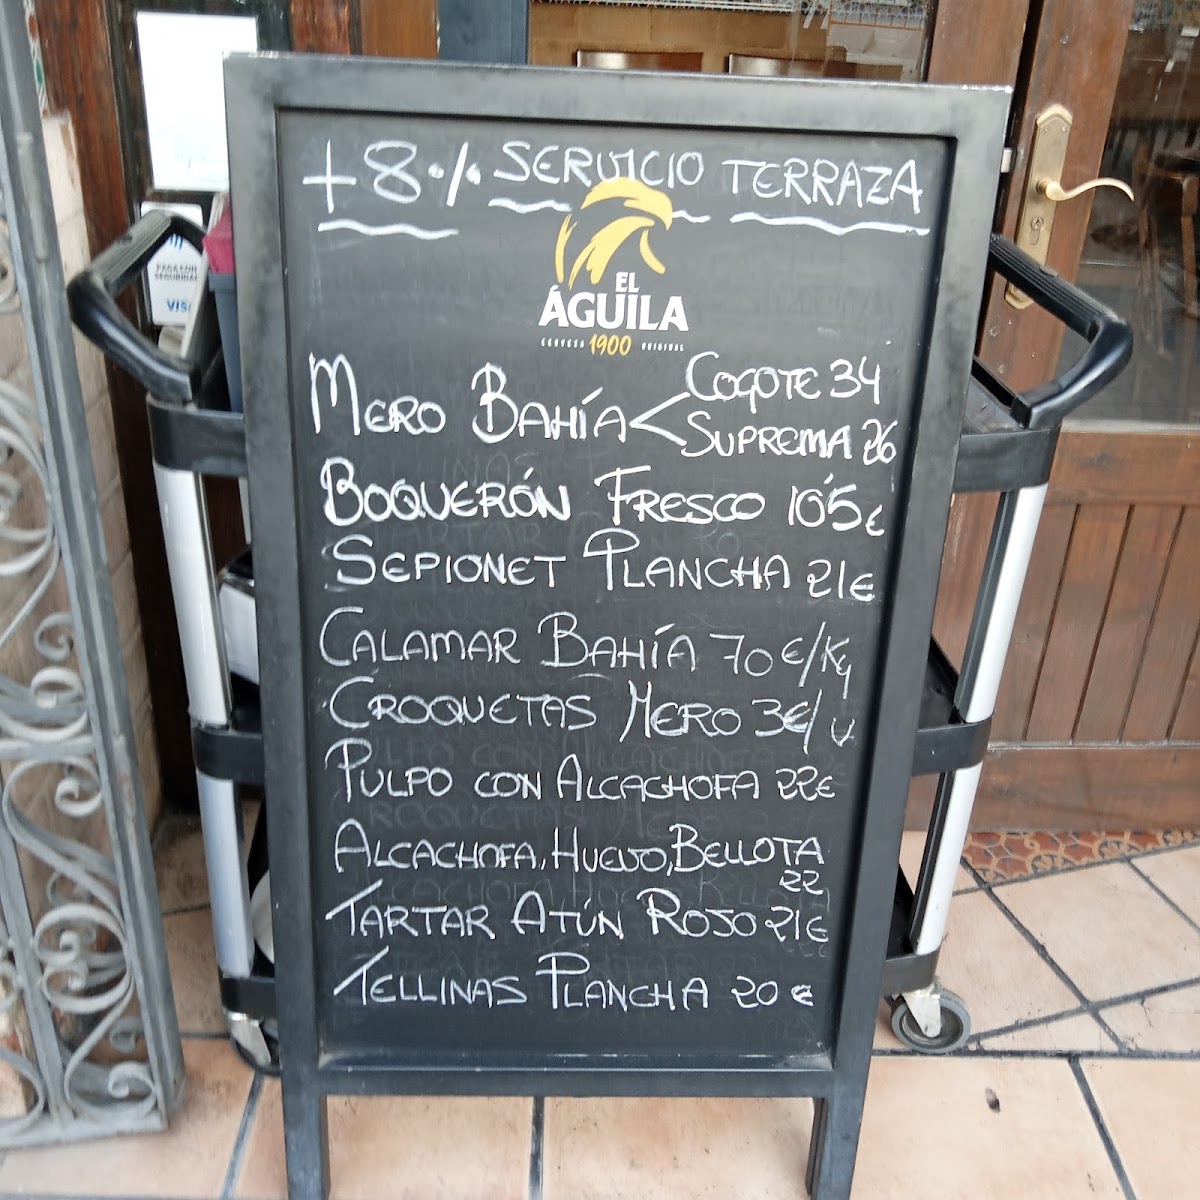 +8% SERVICIO TERRAZA
EL
ÁGUILA
CERVEZA 1900 ORIGINAL
PAGA CON
SEGURIDAD
VISA
MERO BAHÍA < COGOTE 34
SUPREMA 26
BOQUERÓN FRESCO 10'5€
SEPIONET PLANCHA 21€
CALAMAR BAHÍA 70€/Kg
CROQUETAS MERO 3€/u
PULPO CON ALCACHOFA 22€
ALCACHOFA, HUEVO, BELLOTA
22
TARTAR ATÚN ROJO 21€
TELLINAS PLANCHA 20€